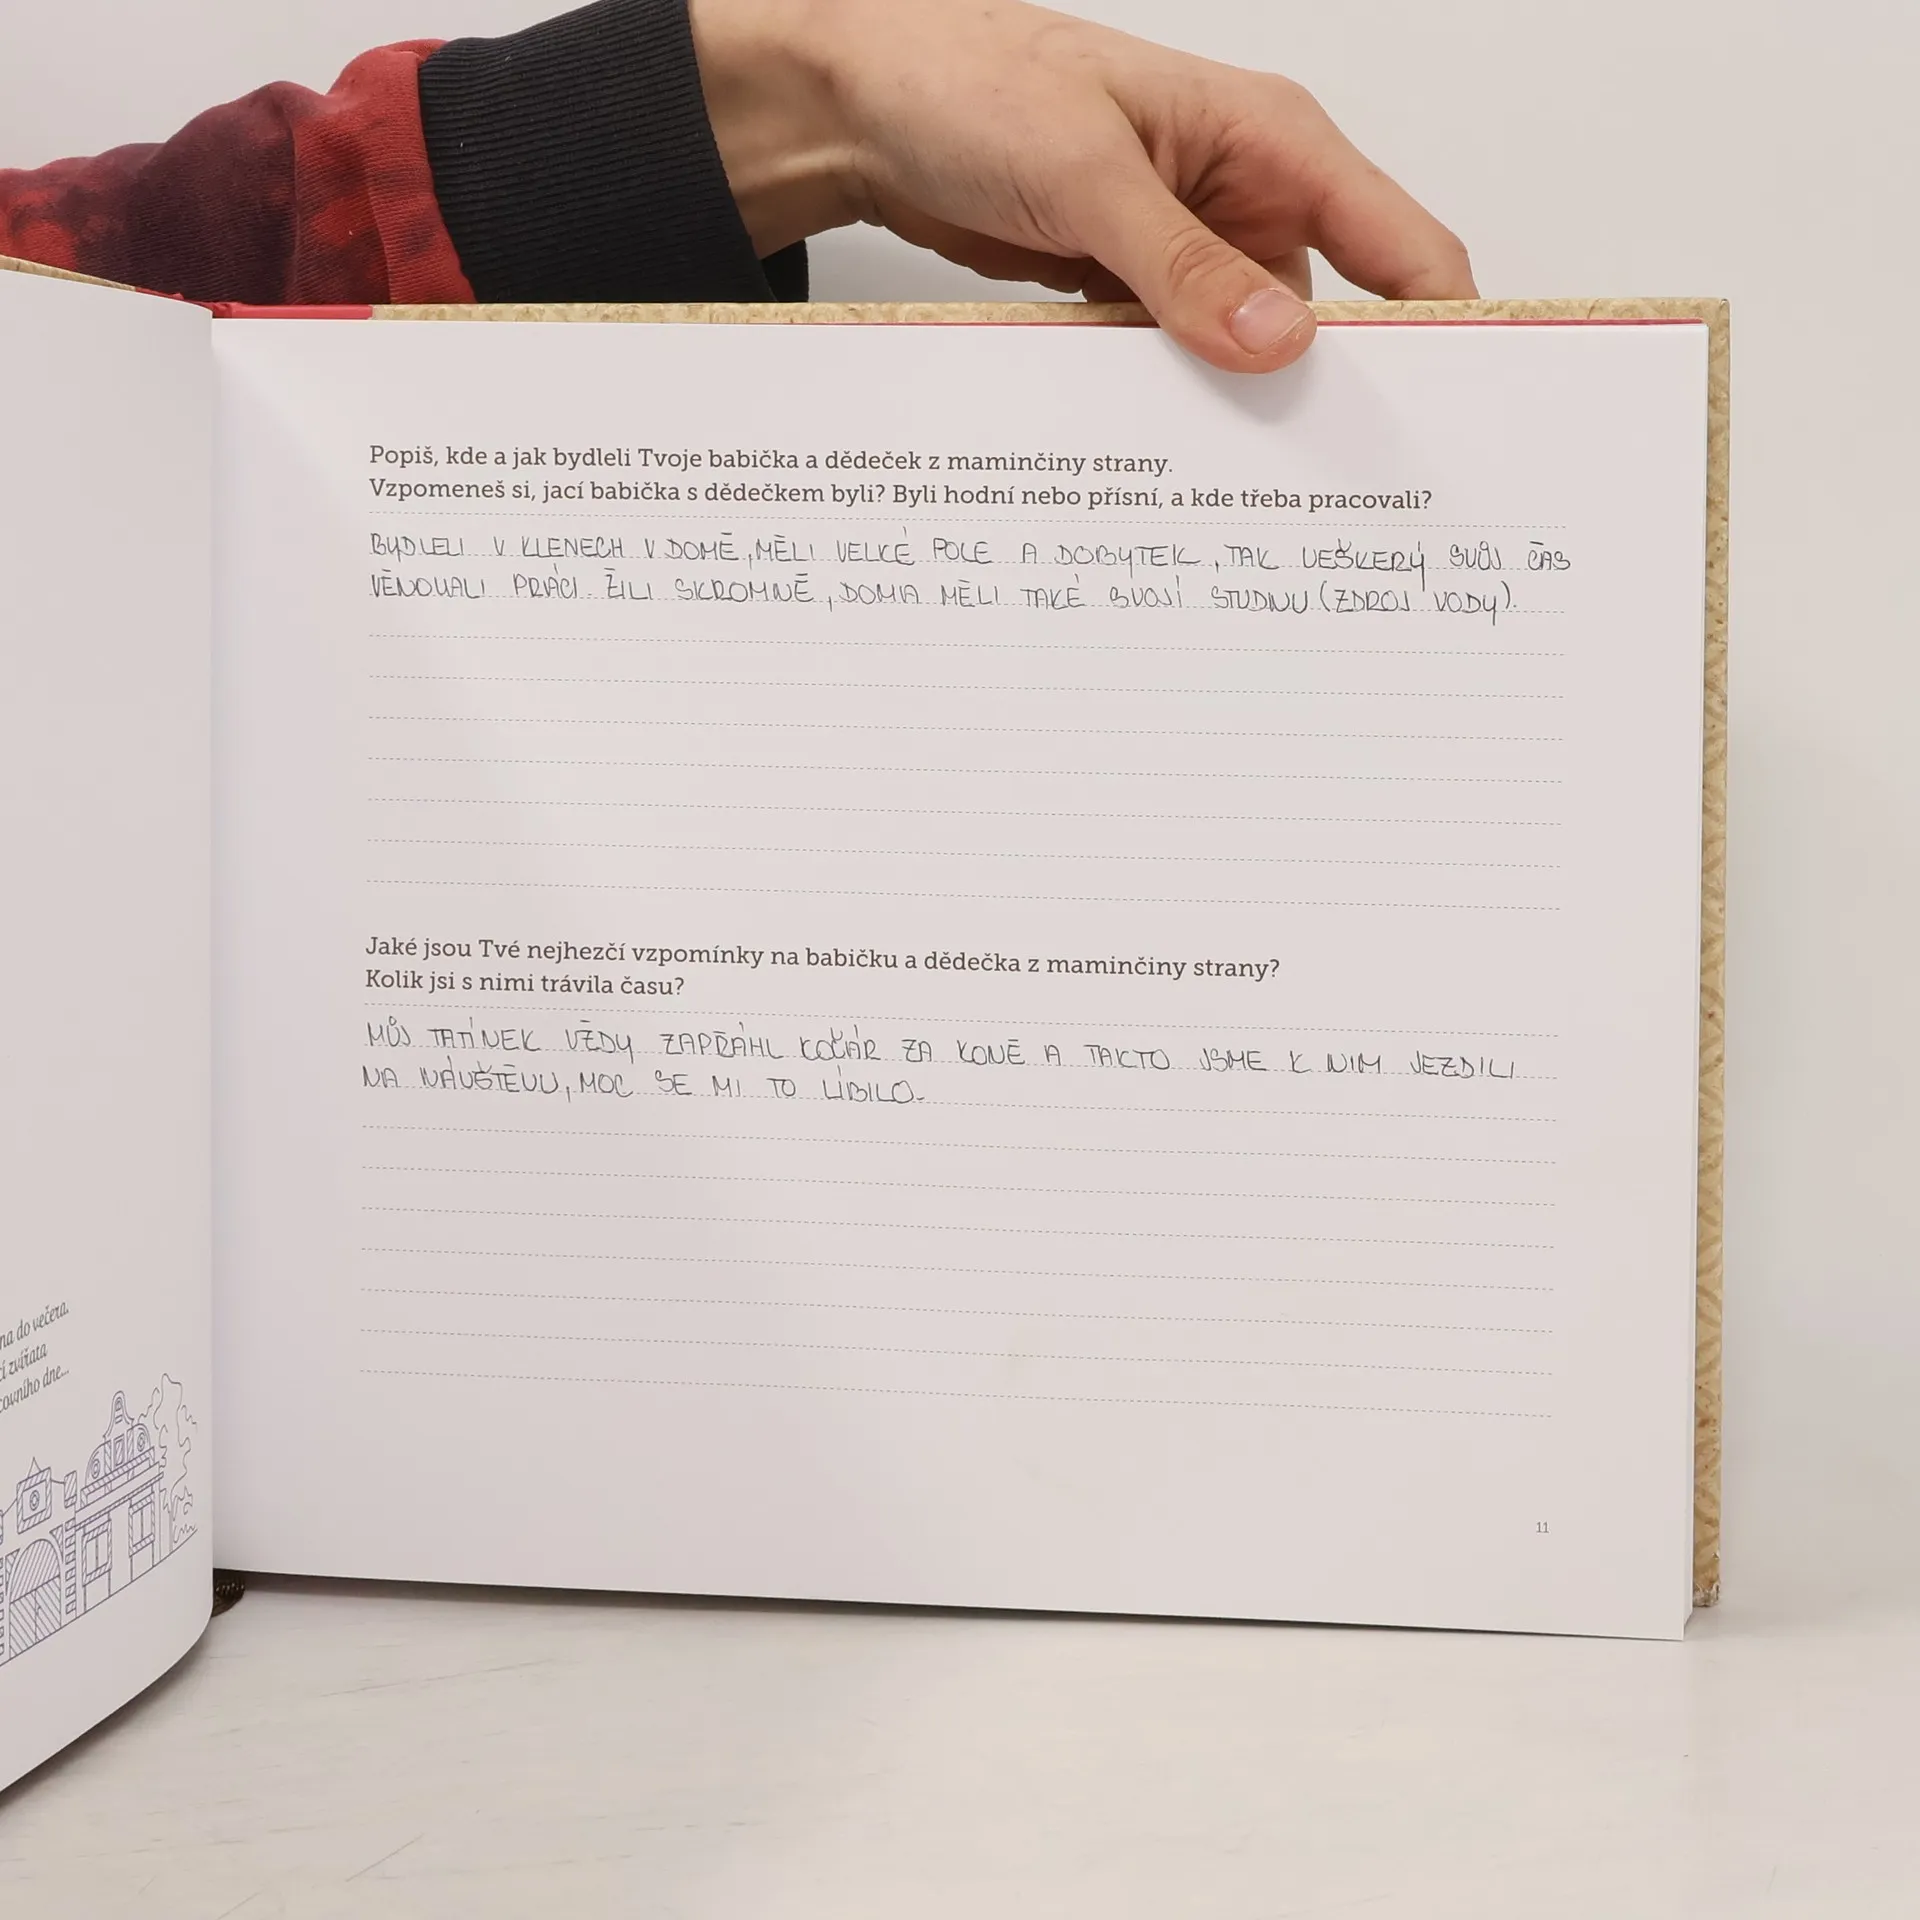 na do večera.
í zvířata
covního dne...
Popiš, kde a jak bydleli Tvoje babička a dědeček z maminčiny strany.
Vzpomeneš si, jací babička s dědečkem byli? Byli hodní nebo přísní, a kde třeba pracovali?
BYDLELI V KLENECH V DOMĚ, MĚLI VELKÉ POLE A DOBYTEK, TAK VEŠKERÝ SVŮJ ČAS
VĚNOVALI PRÁCI. ŽILI SKROMNĚ, DOMA MĚLI TAKÉ SVOJÍ STUDNU (ZDROJ VODY).
Jaké jsou Tvé nejhezčí vzpomínky na babičku a dědečka z maminčiny strany?
Kolik jsi s nimi trávila času?
MŮJ TATÍNEK VŽDY ZAPŘÁHL KOČÁR ZA KONĚ A TAKTO JSME K NIM JEZDILI
NA NÁVŠTĚVU, MOC SE MI TO LÍBILO.
11